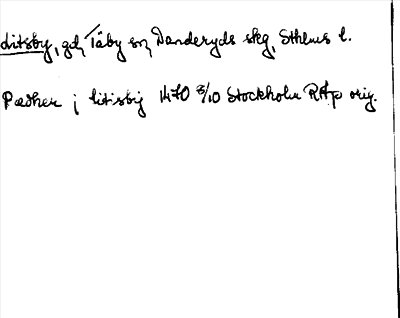 Litsby, gd, Täby sn, Danderyds skg, Sthlms l.
Pædher j litisby 1470 3/10 Stockholm RAp orig.